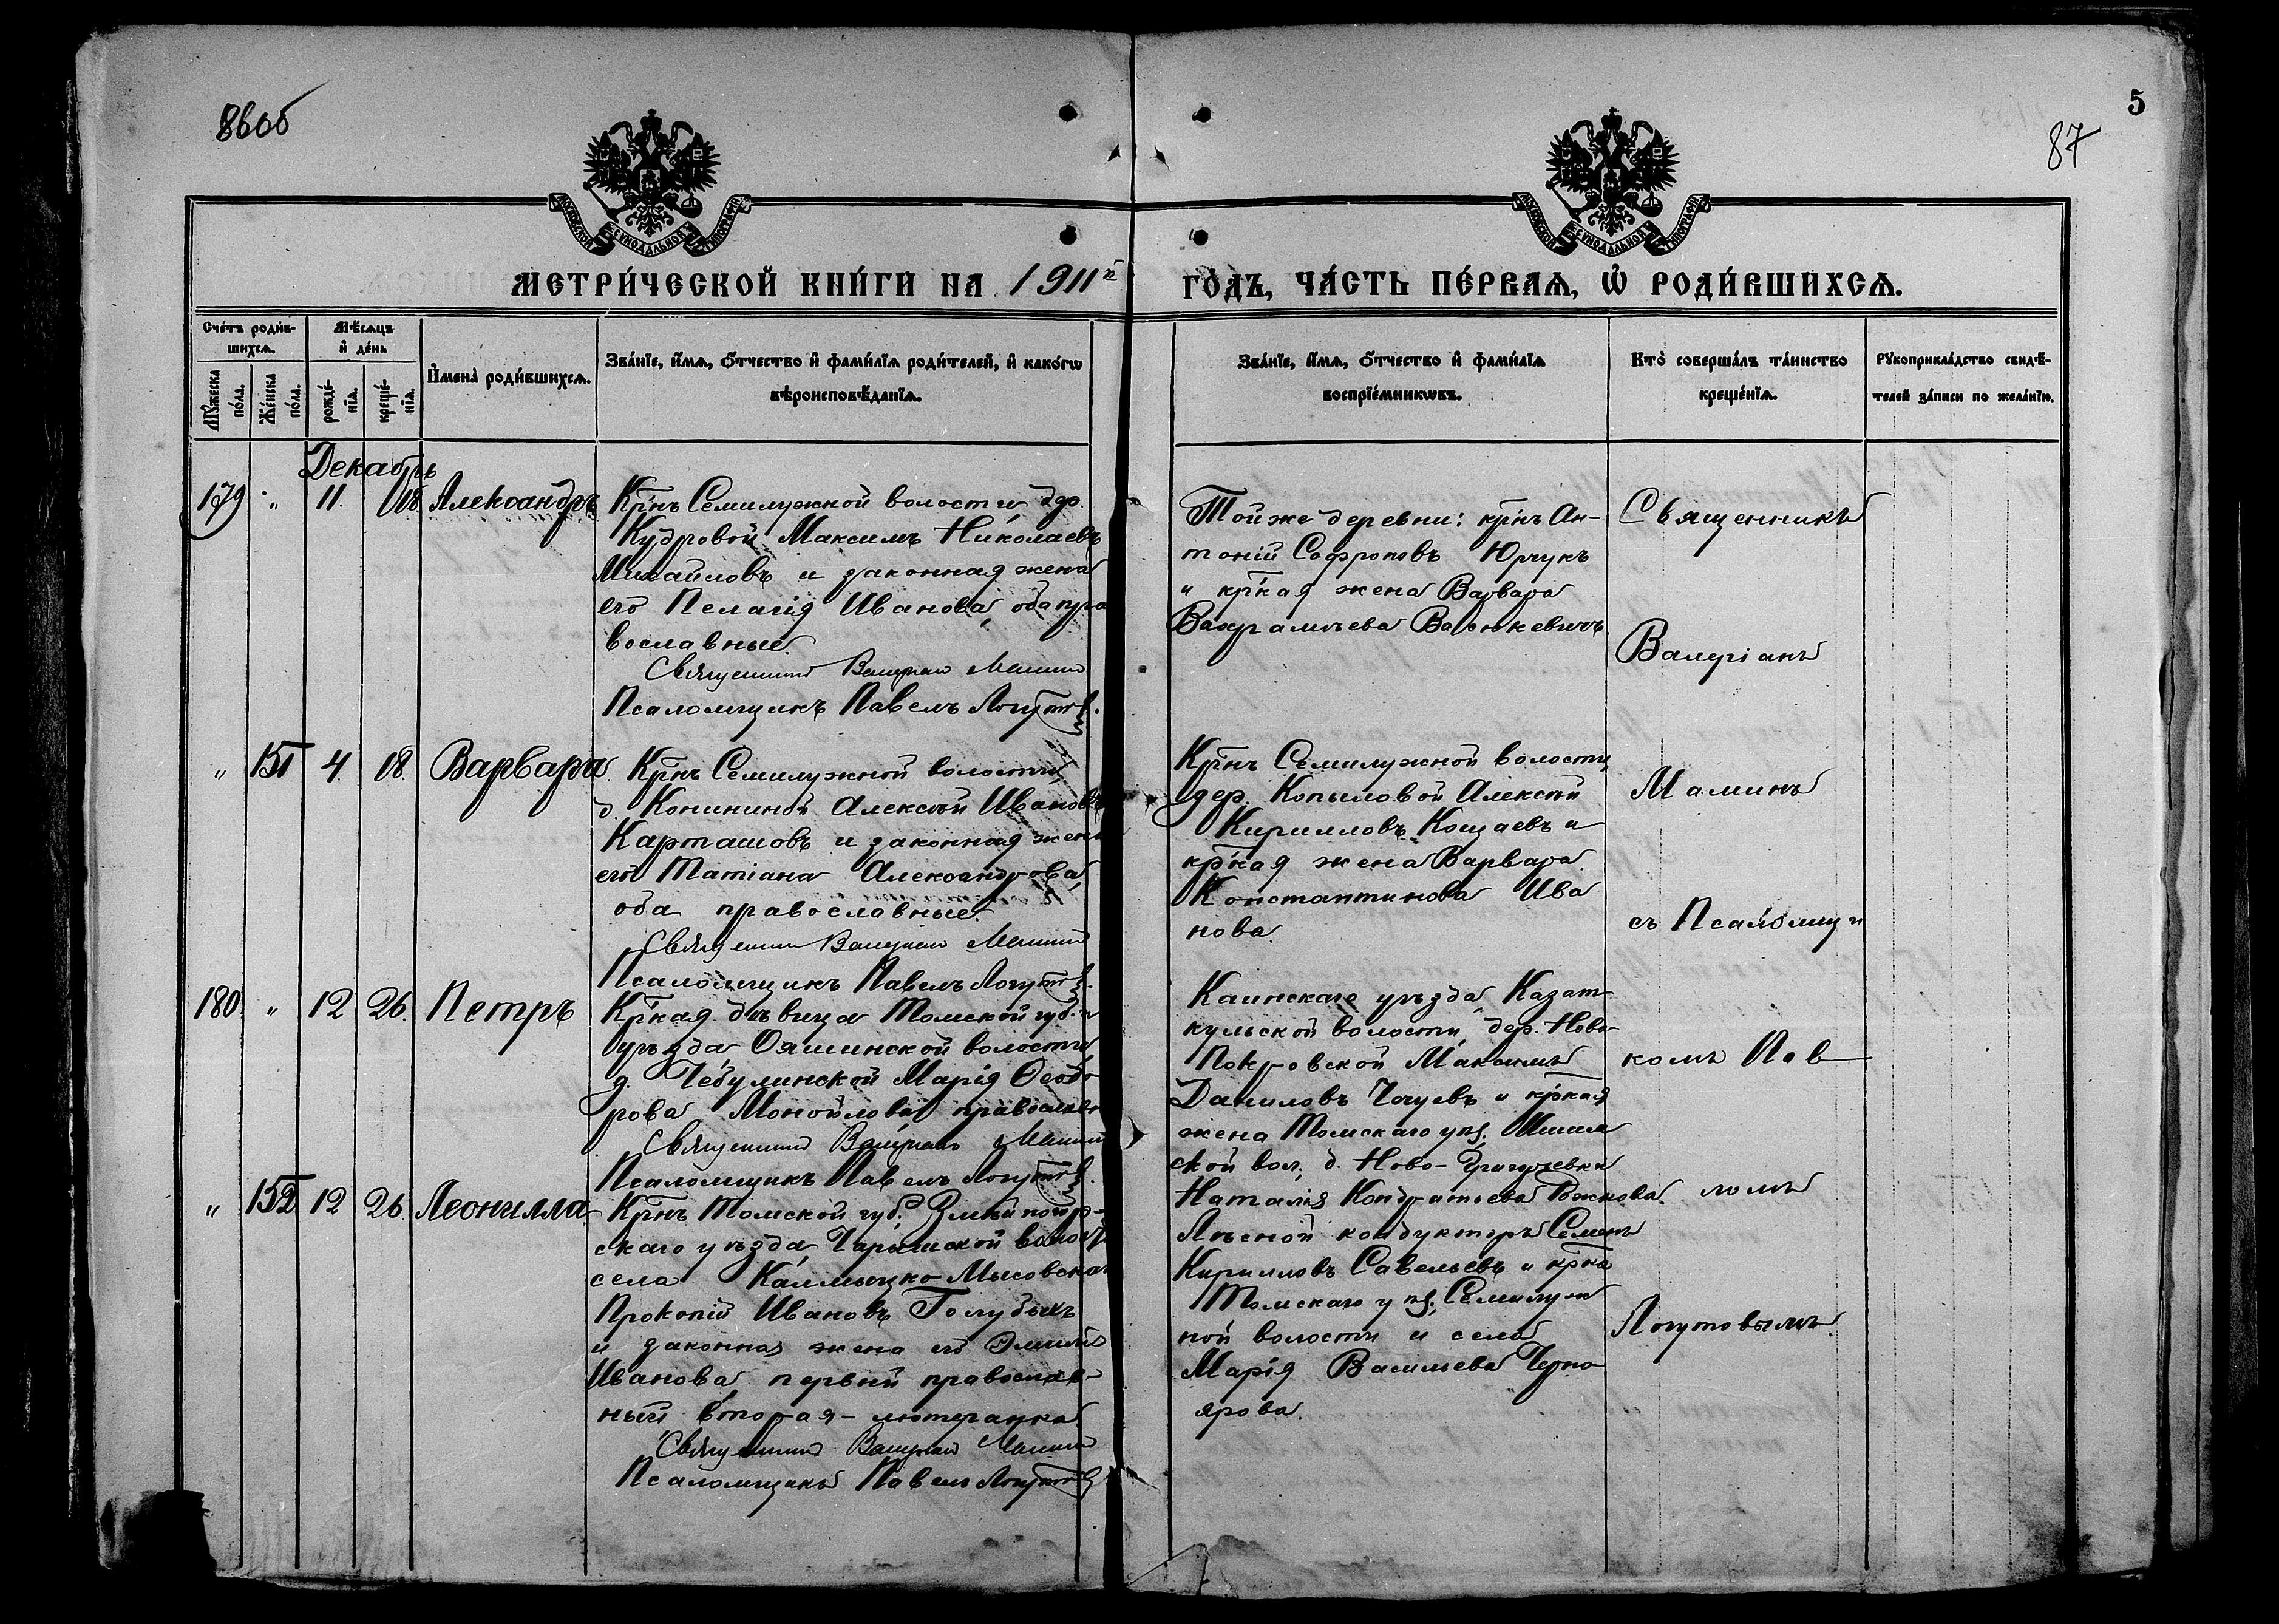 86об
5
87
МОСКОВСКОЙ СѴНОДАЛЬНОЙ ТИПОГРАФІИ
МОСКОВСКОЙ СѴНОДАЛЬНОЙ ТИПОГРАФІИ
МЕТРИ́ЧЕСКОЙ КНИ́ГИ НА 1911й
ГО́ДЪ, ЧА́СТЬ ПЕ́РВАѦ, Ѡ҆ РОДИ́ВШИХСѦ.
Сче́тъ роди́в-
шихсѧ.
Мѣ́сѧцъ
и҆ де́нь
Мꙋ́жеска
по́ла.
Же́нска
по́ла.
рожде́-
нїѧ.
креще́-
нїѧ.
И҆мена̀ роди́вшихсѧ.
Зва́нїе, и҆́мѧ, ѻ҆́тчество и҆ фами́лїѧ роди́телей, и҆ како́гѡ
вѣроисповѣ́данїѧ.
Зва́нїе, и҆́мѧ, ѻ҆́тчество и҆ фами́лїѧ
воспрїе́мникѡвъ.
Кто̀ соверша́лъ та́инство
креще́нїѧ.
Рꙋкоприкла́дство свидѣ́-
телей за́писи по жела́нїю.
Декабрь
179 " 11. 18. Александръ
Кр̅нъ Семилужной волости, дер.
Кудровой Максимъ Николаевъ
Михайловъ и законная жена
его Пелагія Иванова, оба пра
вославные.
Священникъ Валеріанъ Маминъ
Псаломщикъ Павелъ Логутовъ.
Той же деревни: кр̅нъ Ан-
тоній Софроновъ Юрчукъ
и кр̅ная жена Варвара
Вахрамѣева Васюкевичъ
Священникъ
Валеріанъ
" 151 4. 18. Варвара.
Кр̅нъ Семилужной волости,
д. Конининой Алексѣй Ивановъ
Карташовъ и законная жена
его Татіана Александрова,
оба православные.
Священникъ Валеріанъ Маминъ
Псаломщикъ Павелъ Логутовъ.
Кр̅нъ Семилужной волости,
дер. Копыловой Алексѣй
Кирилловъ Кощаевъ и
кр̅ная жена Варвара
Константинова Ива
нова.
Маминъ
съ Псаломщи
180. " 12 26. Петръ
Кр̅ная дѣвица Томской губ. и
уѣзда Ояшинской волости
д. Чебулинской Марія Ѳеодо
рова, православн
Священникъ Валеріанъ Маминъ
Псаломщикъ Павелъ Логутовъ.
Каинскаго уѣзда, Казат-
кульской волости, дер. Ново
Покровской Максимъ
Даниловъ и кр̅ная
жена Томскаго уѣз. Ишим
ской вол. д. Ново-Григорьевки
Наталія Кондратьева Божкова.
комъ Пав
ломъ
" 152 12 26. Леонилла
Кр̅нъ Томской губ. Змѣиногор-
скаго уѣзда Чарышской волост
села Калмыцко-Мысовскаго
Прокопій Ивановъ Голубыхъ
и законная жена его Эмилія
Иванова, первый православ-
ный, вторая - лютеранка.
Священникъ Валеріанъ Маминъ
Псаломщикъ Павелъ Логутовъ
Лѣсной кондукторъ Семенъ
Кирилловъ Савельевъ и кр̅ка
Томскаго уѣз. Семилуж
ной волости и села
Марія Васильева Черно
ярова.
Логутовымъ.